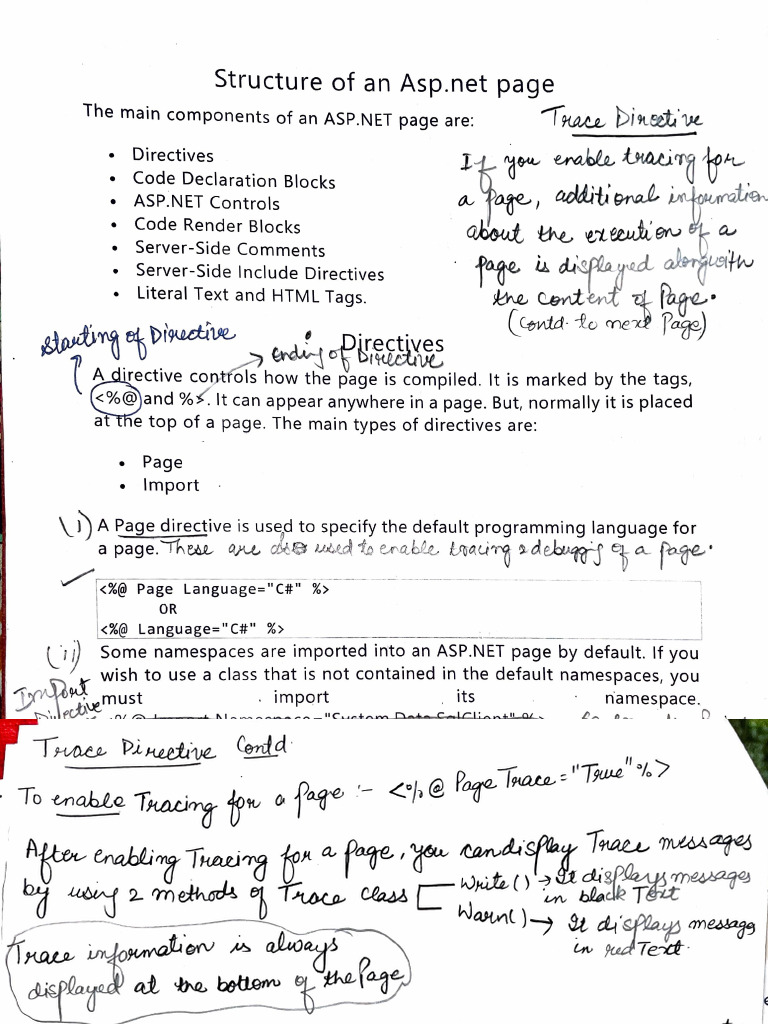 Structure of an Asp.net page
The main components of an ASP.NET page are:
• Directives
• Code Declaration Blocks
• ASP.NET Controls
• Code Render Blocks
• Server-Side Comments
• Server-Side Include Directives
• Literal Text and HTML Tags.
Trace Directive
If you enable tracing for
a page, additional information
about the execution of a
page is displayed alongwith
the content of Page.
(Contd. to next Page)
Directives
starting of Directive
ending of Directive
A directive controls how the page is compiled. It is marked by the tags,
<%@ and %>. It can appear anywhere in a page. But, normally it is placed
at the top of a page. The main types of directives are:
• Page
• Import
(i) A Page directive is used to specify the default programming language for
a page. These are also used to enable tracing & debugg'g of a page.
<%@ Page Language="C#" %>
OR
<%@ Language="C#" %>
(ii) Some namespaces are imported into an ASP.NET page by default. If you
wish to use a class that is not contained in the default namespaces, you
must import its namespace.
Import
Directive
<%@ Import Namespace="System.Data.SqlClient" %>
Trace Directive Contd.
To enable Tracing for a page :- <%@ Page Trace="True" %>
After enabling Tracing for a page, you can display Trace messages
by using 2 methods of Trace class
Write() → It displays messages
in black Text
Warn() → It displays message
in red Text.
Trace information is always
displayed at the bottom of the Page